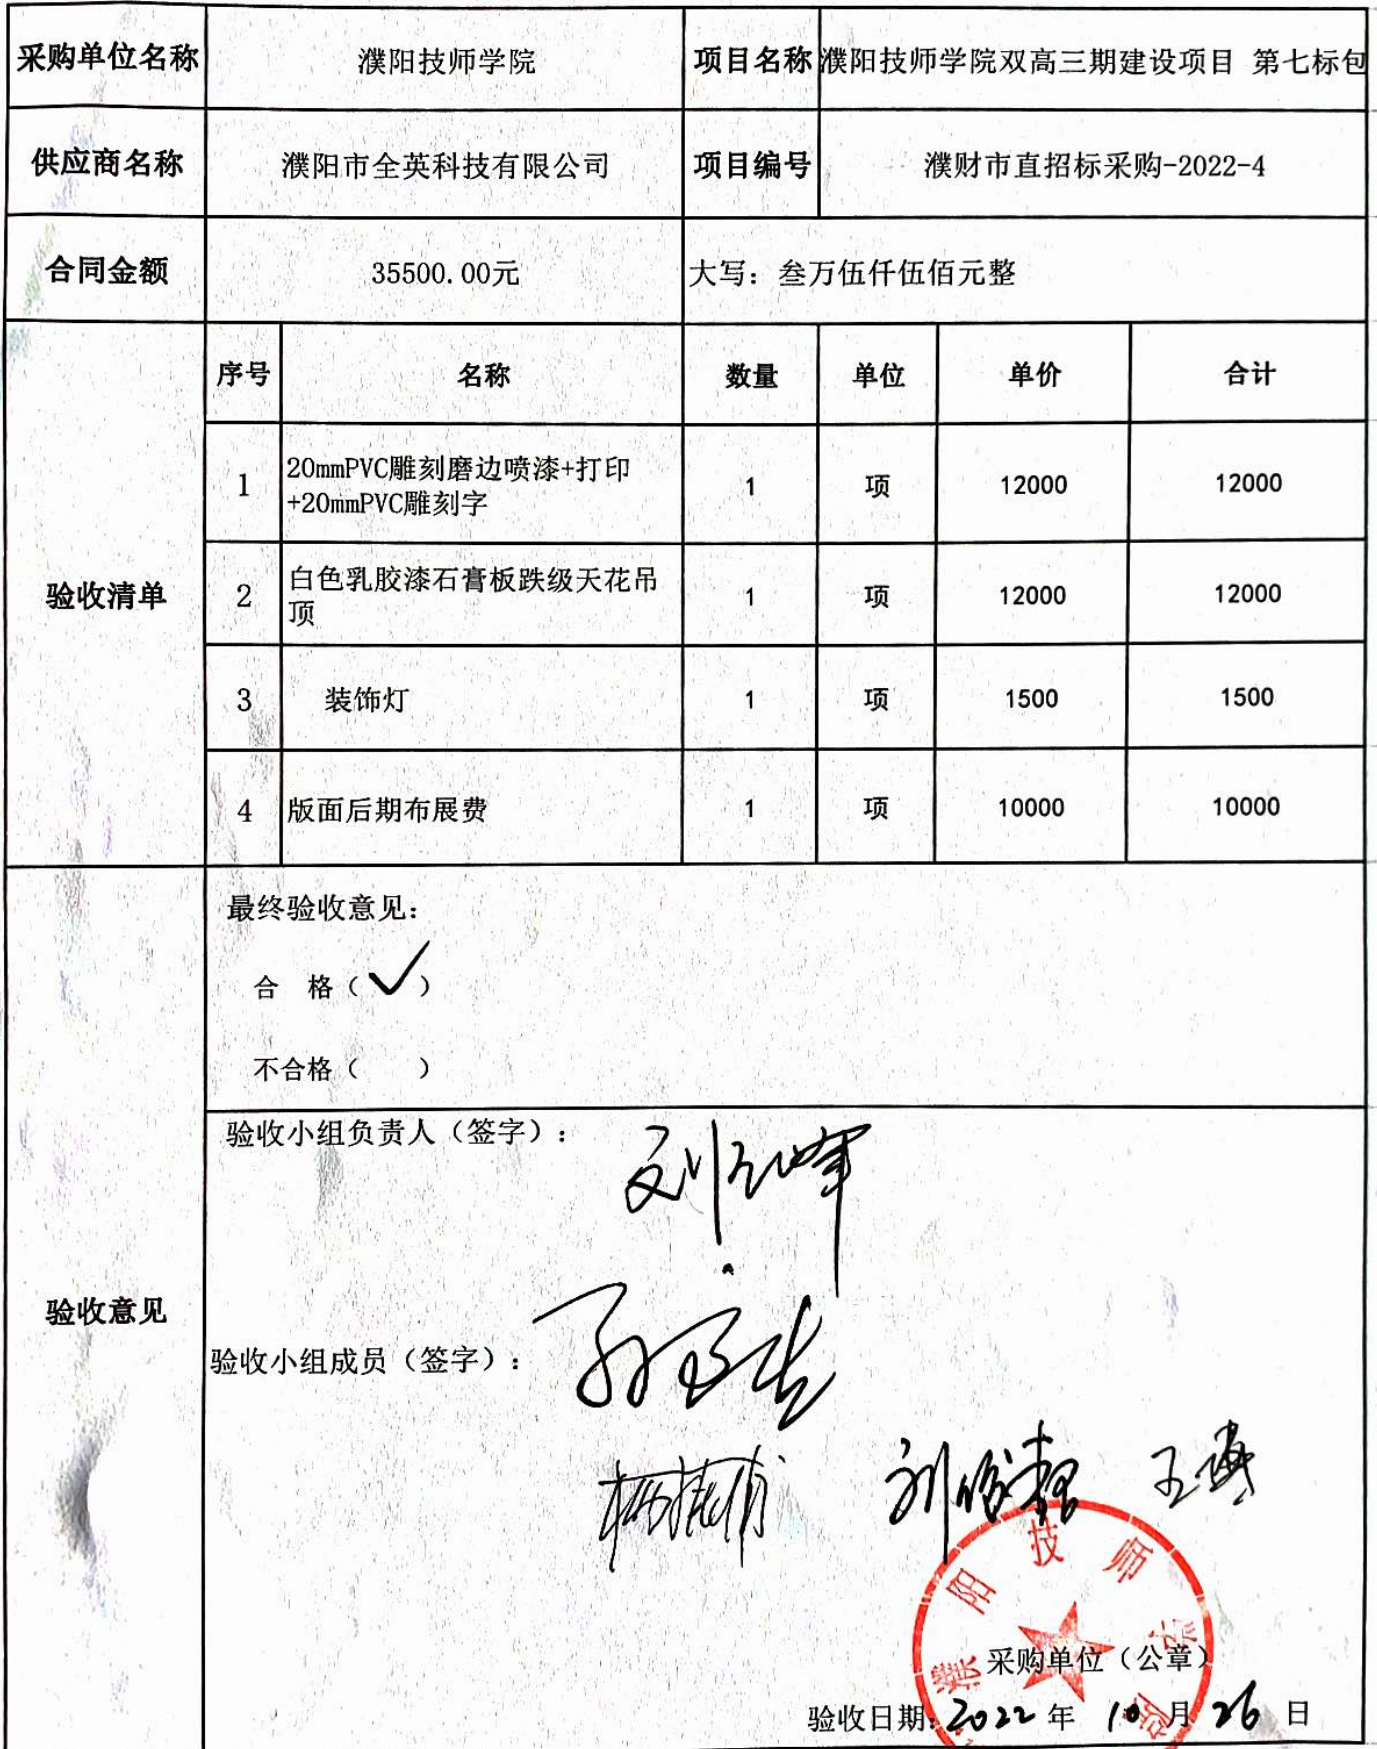 采购单位名称 濮阳技师学院 项目名称 濮阳技师学院双高三期建设项目 第七标包
供应商名称 濮阳市全英科技有限公司 项目编号 濮财市直招标采购-2022-4
合同金额 35500.00元 大写：叁万伍仟伍佰元整
验收清单
序号 名称 数量 单位 单价 合计
1 20mmPVC雕刻磨边喷漆+打印
+20mmPVC雕刻字 1 项 12000 12000
2 白色乳胶漆石膏板跌级天花吊
顶 1 项 12000 12000
3 装饰灯 1 项 1500 1500
4 版面后期布展费 1 项 10000 10000
验收意见
最终验收意见：
合 格（✓）
不合格（ ）
验收小组负责人（签字）：
验收小组成员（签字）：
濮阳技师学院
采购单位（公章）
验收日期：2022年 10月 26日